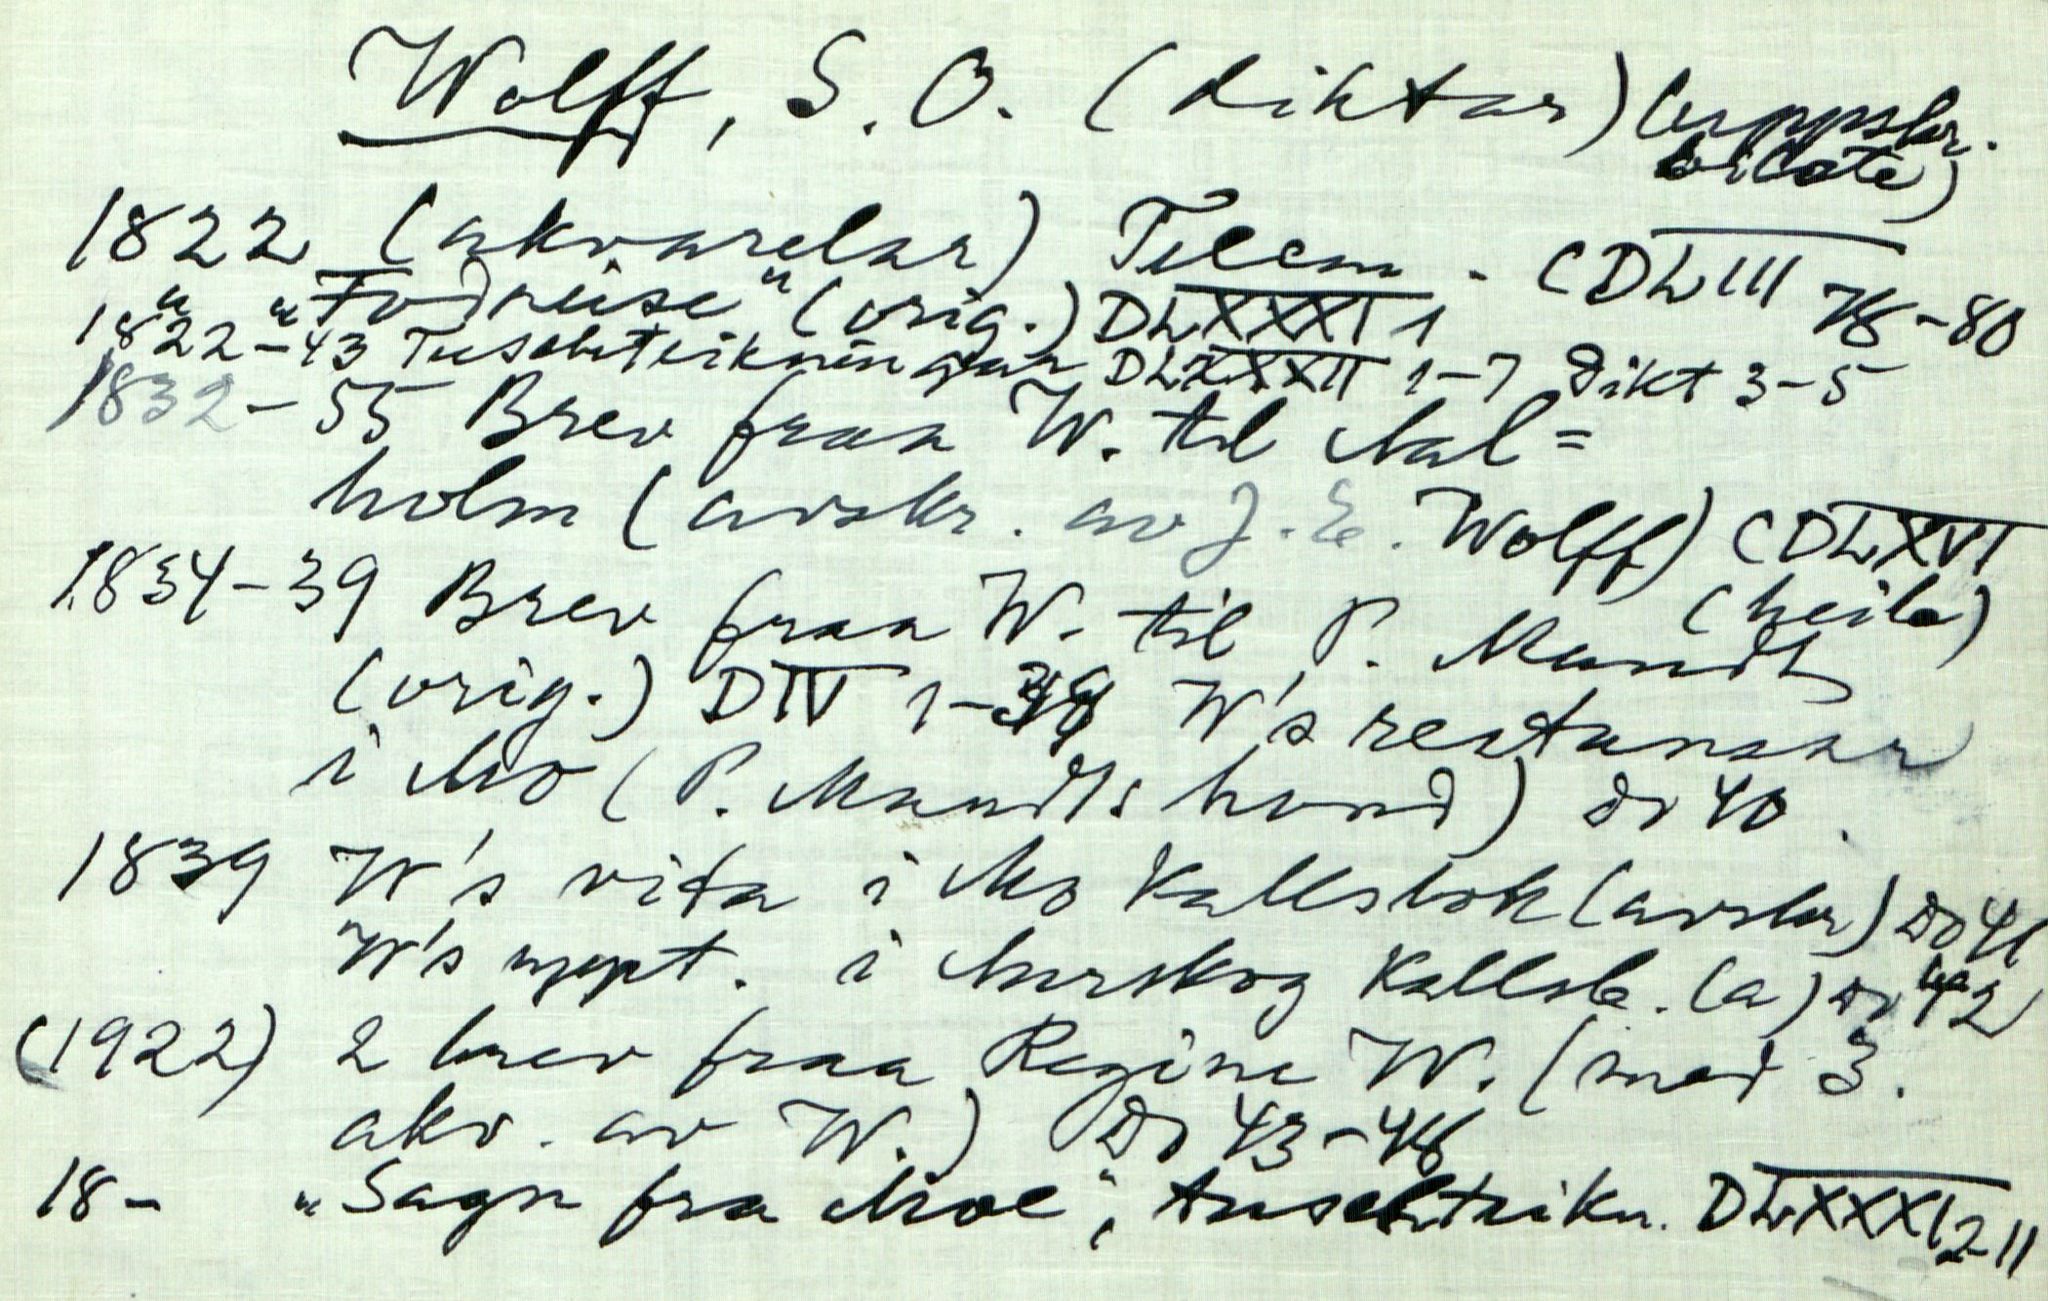 Wolff, S. O. (diktar) (uppskr.
bilete)
1822 (akvarelar) Telem. CDLIII 78-80
" "Fodreise" (orig.) DLXXXI 1
1822-43 Tuschteikningar DLXXXII 1-7 Dikt 3-5
1832-55 Brev fraa W. til Mal=
holm (avskr. av J. E. Wolff) CDLXVI
(heile)
1834-39 Brev fraa W. til P. Mandt
(orig.) DIV 1- W's restansar
i Mo (P. Mandts hand) Do 40.
1839 W's vita i Mo Kallsbok (avskr) Do 41
W's uppt. i Aurskog Kallsb. (a) Do 42
(1922) 2 brev fraa Regine W. (med 3.
akv. av W.) Do 43-46
18- "Sagn fra Moe", tuschteikn. DLXXXI 2-11